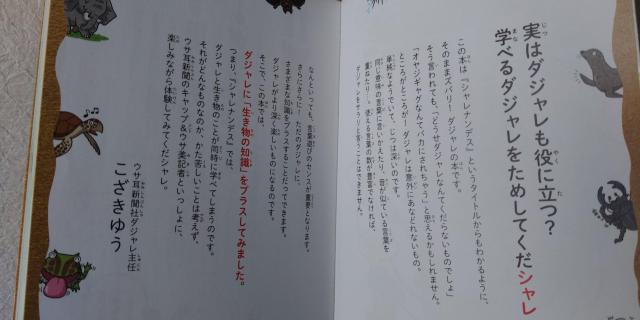 実はダジャレも役に立つ?
学べるダジャレをためしてくだシャレ
この本は『シャレナンデス』というタイトルからもわかるように、
そのままズバリー！ダジャレの本です。
そう言われても、「どうせダジャレなんてくだらないものでしょ」
「オヤジギャグなんてバカにされちゃう」と思えるかもしれません。
ところがところが！ダジャレは意外にあなどれないもの。
単純なようでいて、じつは深いのです。
同じ意味の言葉に言いかえたり、音が似ている言葉を
重ねたり……使える言葉の数が豊富でなければ、
ダジャレをサラリと言うことはできません。
なんといっても、言葉遊びのセンスが重要となります。
さらにさらに！ただのダジャレに、
さまざまな知識をプラスすることだってできます。
ダジャレがより深く楽しいものになるのです。
そこで、この本では、
ダジャレに「生き物の知識」をプラスしてみました。
つまり、『シャレナンデス』では、
ダジャレと生き物のことが同時に学べてしまうのです。
それがどんなものなのか、かた苦しいことは考えず、
ウサ耳新聞のキャップ&ウサ美記者といっしょに、
楽しみながら体験してみてくだシャレ。
ウサ耳新聞社ダジャレ主任
こざきゆう